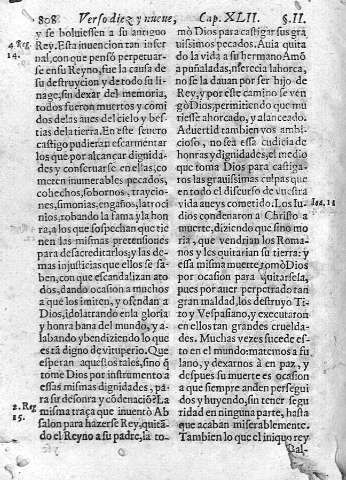 808 Verso diez y nueue, Cap. XLII. §. II.
y se boluiessen a su antiguo
Rey. Esta inuencion tan infer
nal, con que pensò perpetuar-
se en su Reyno, fue la causa de
su destruycion y de todo su li
nage, sin dexar del memoria,
todos fueron muertos y comi
dos de las aues del cielo y bes-
tias de la tierra. En este seuero
castigo pudieran escarmentar
los que por alcançar dignida-
des y conseruarse en ellas, co-
meten inumerables pecados,
cohechos, sobornos, trayciò-
nes, simonias, engaños, latroci
nios, robando la fama y la hon
ra, a los que sospechan que tie
nen las mismas pretensiones
para desacreditarlos; y las de-
mas injusticias que ellos se sa-
ben, con que escandalizan ato
dos, dando ocasion a muchos
a que los imiten, y ofendan a
Dios, idolatrando en la gloria
y honra bana del mundo, y a-
labando y bendiziendo lo que
està digno de vituperio. Que
esperan aquestos tales, sino q̃
tome Dios por instrumento a
essas mismas dignidades, pa-
ra su desonra y cõdenaciõ? La
misma traça que inuentò Ab
salon para hazerse Rey, quitã-
do el Reyno a su padre, la to-
4. Reg
14.
2. Reg
15.
mò Dios para castigar sus gra
uissimos pecados. Auia quita
do la vida a su hermano Amõ
a puñaladas, merecia la horca,
no se la dauan por ser hijo de
Rey, y por este camino se ven
gò Dios, permitiendo que mu
riesse ahorcado, y alanceado.
Aduertid tambien vos ambi-
cioso, no sea essa cudicia de
honras y dignidades, el medio
que toma Dios para castiga-
ros las grauissimas culpas que
en todo el discurso de vuestra
vida aueys cometido. Los Iu-
dios condenaron a Christo a
muerte, diziendo que sino mo
ria, que vendrian los Roma-
nos y les quitarian su tierra: y
essa misma muerte, tomò Dios
por ocasion para quitarsela,
pues por auer perpetrado tan
gran maldad, los destruyo Ti-
to y Vespasiano, y executaron
en ellos tan grandes crueldа-
des. Muchas vezes sucede es-
to en el mundo: matemos a fu
lano, y dexarnos à en paz, y
despues su muerte es ocasion
a que siempre anden persegui
dos y huyendo, sin tener segu
ridad en ninguna parte, hasta
que acaban miserablemente.
Tambien lo que el iniquo rey
Bal-